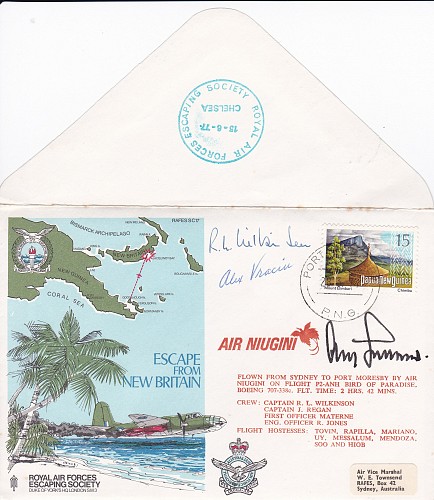 ROYAL AIR FORCES ESCAPING SOCIETY
15-6-77
CHELSEA
RAFES SC17
BISMARCK ARCHIPELAGO
NEW BRITAIN
NEW GUINEA
CORAL SEA
ESCAPE
FROM
NEW BRITAIN
ROYAL AIR FORCES
ESCAPING SOCIETY
DUKE OF YORK'S HQ LONDON SW3
Alex Vraciu
15
Mount Lamington
PAPUA NEW GUINEA
PORT
P.N.G.
AIR NIUGINI
FLOWN FROM SYDNEY TO PORT MORESBY BY AIR
NIUGINI ON FLIGHT PJ-ANH BIRD OF PARADISE,
BOEING 707-338c. FLT. TIME: 2 HRS. 42 MINS.
CREW: CAPTAIN R. L. WILKINSON
CAPTAIN J. REGAN
FIRST OFFICER MATERNE
ENG. OFFICER R. JONES
FLIGHT HOSTESSES: TOVIN, RAPILLA, MARIANO,
UY, MESSALUM, MENDOZA,
SOO AND HIOB
Air Vice Marshal
W. E. Townsend
RAFES, Box 42
Sydney, Australia